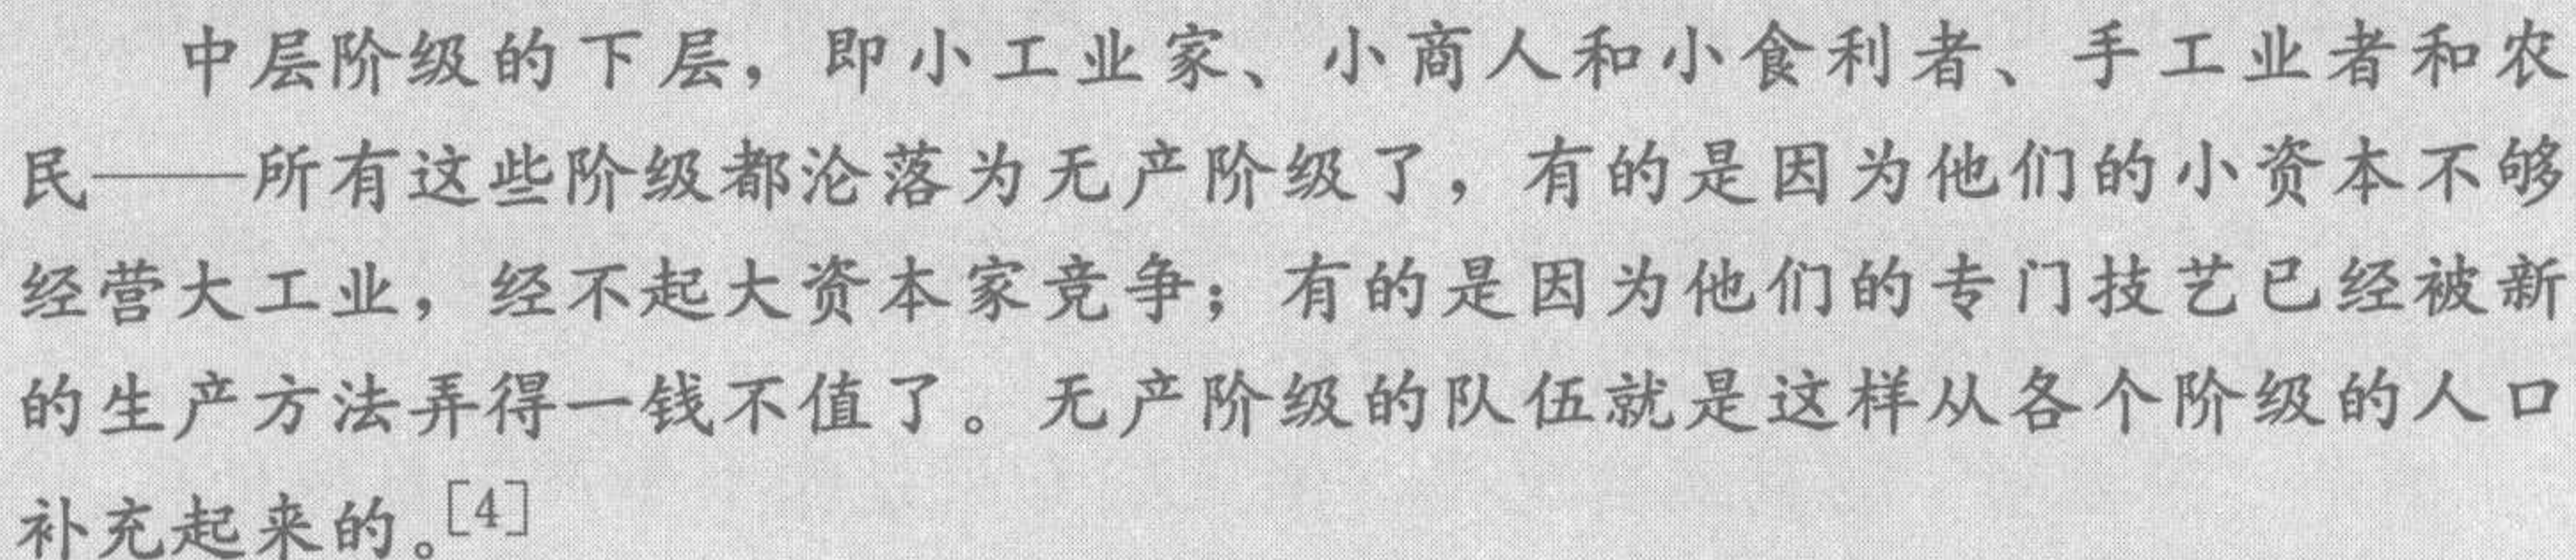 中层阶级的下层，即小工业家、小商人和小食利者、手工业者和农
民——所有这些阶级都沦落为无产阶级了，有的是因为他们的小资本不够
经营大工业，经不起大资本家竞争；有的是因为他们的专门技艺已经被新
的生产方法弄得一钱不值了。无产阶级的队伍就是这样从各个阶级的人口
补充起来的。[4]